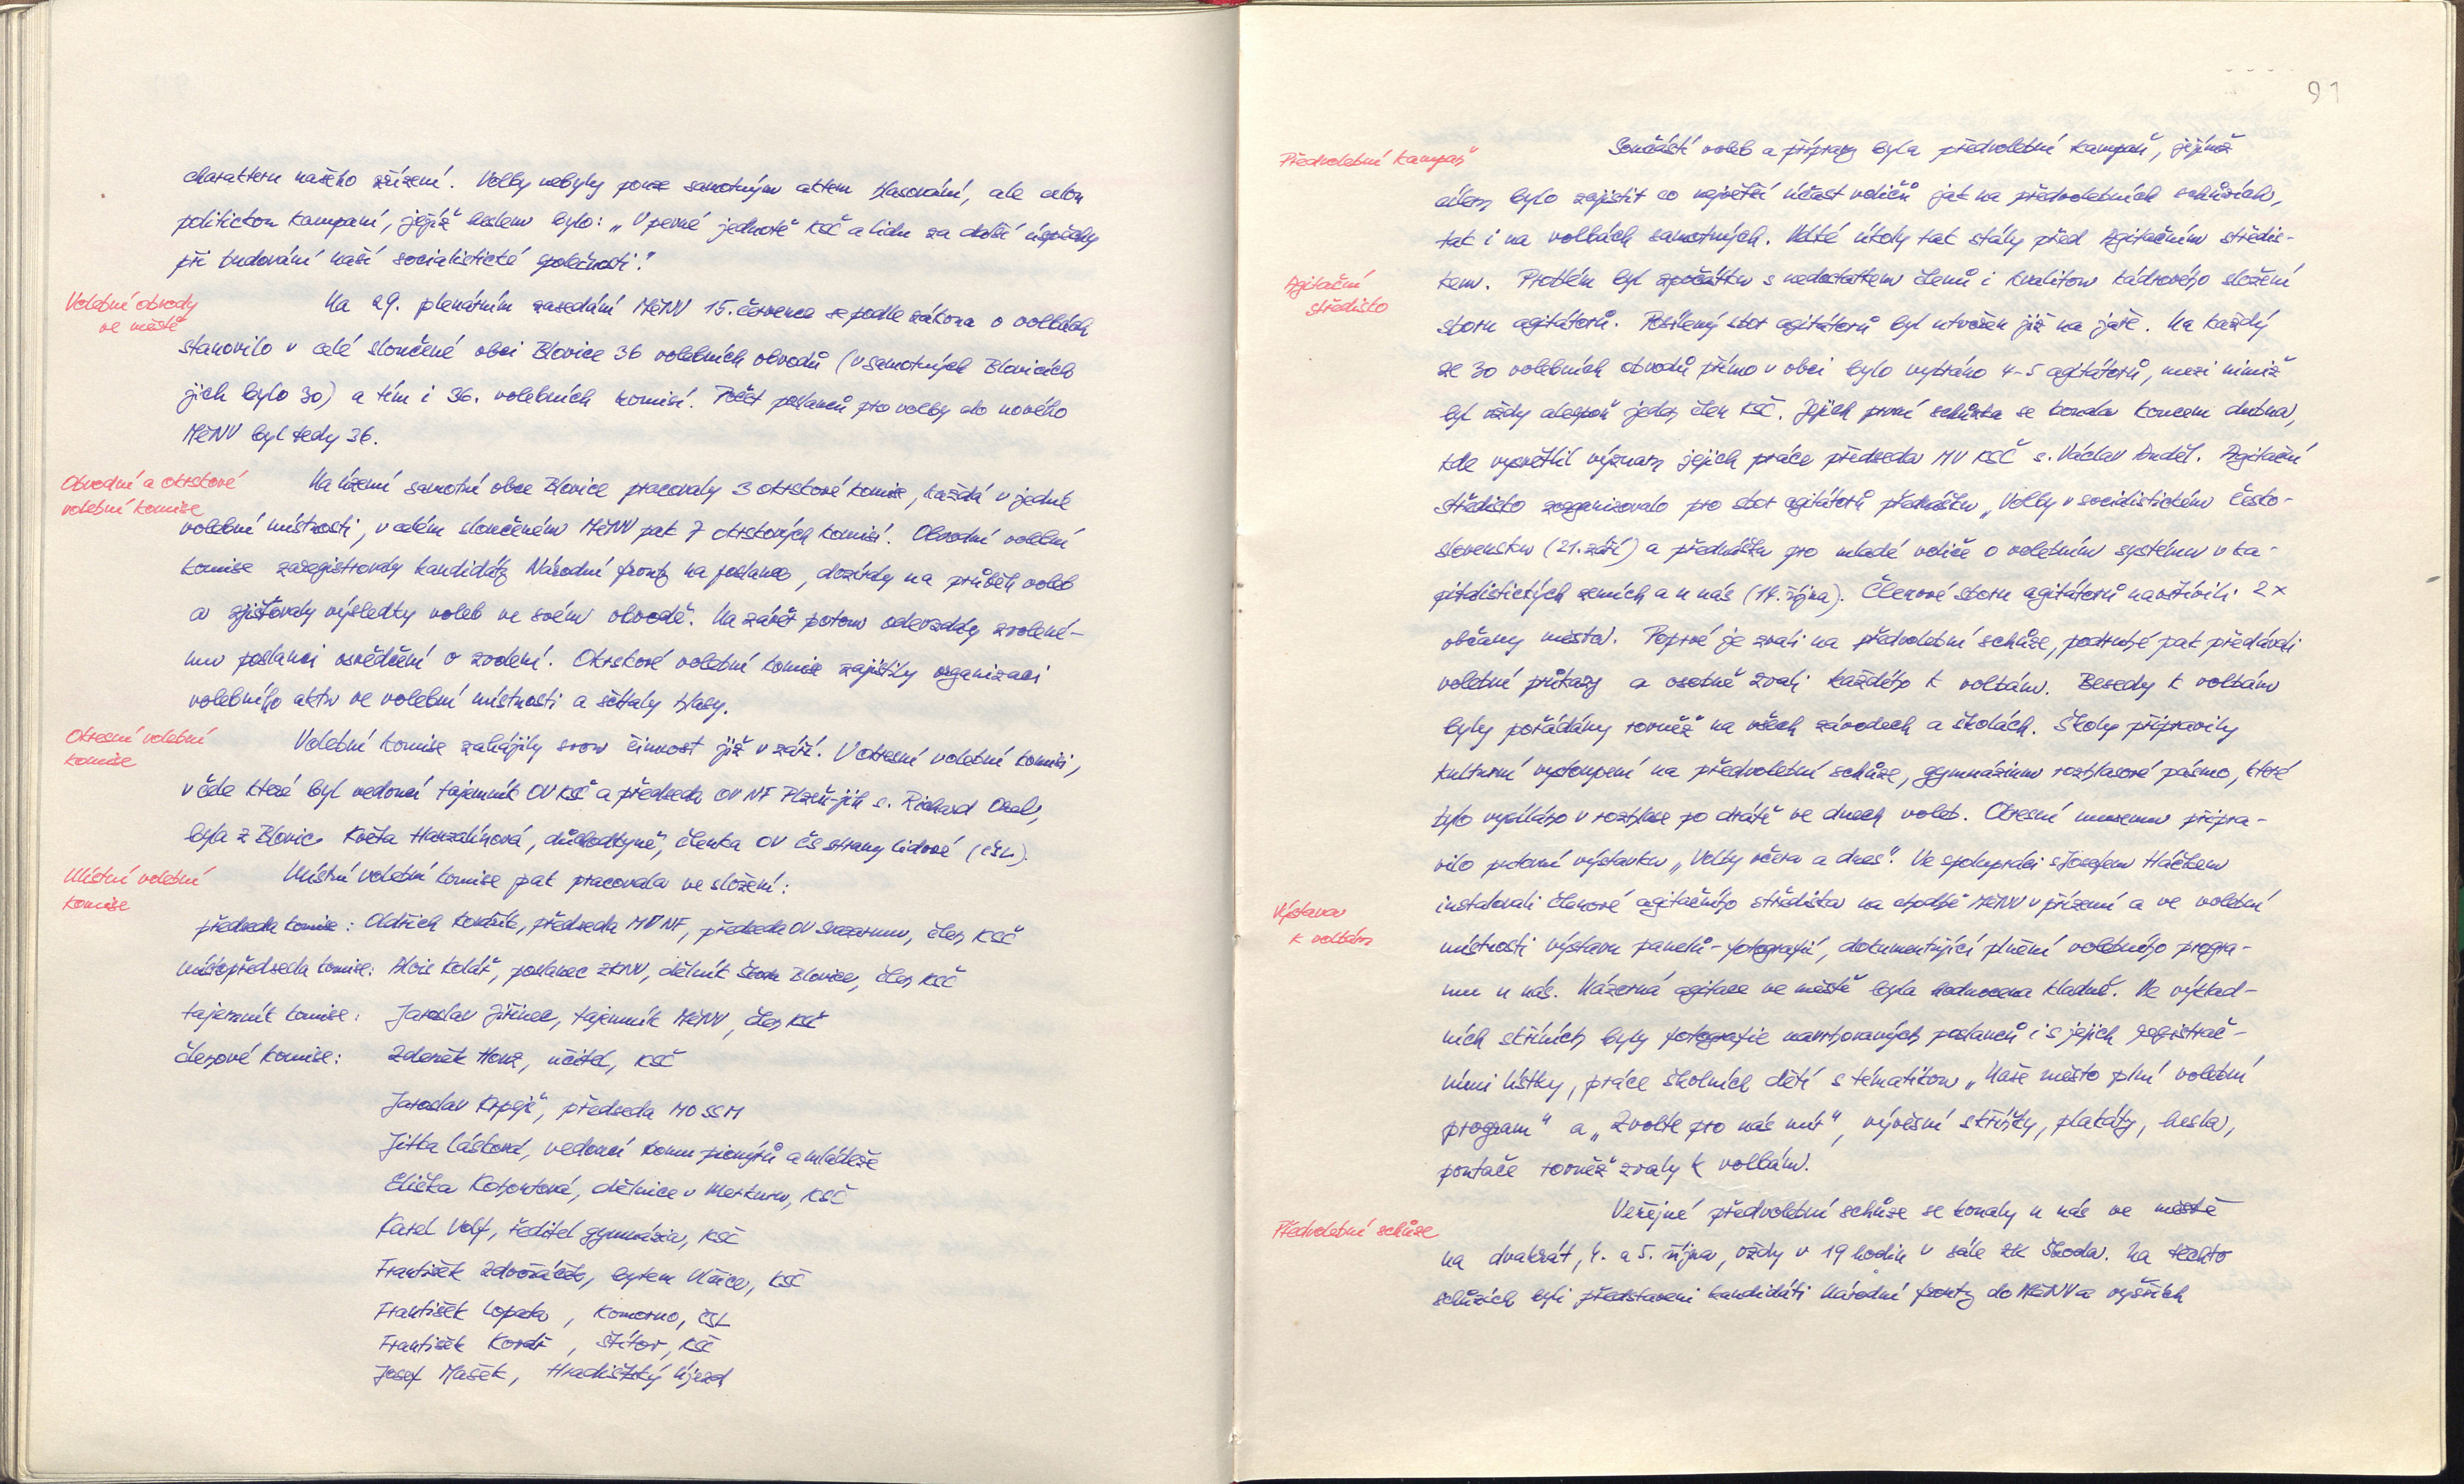 charakteru našeho zřízení. Volby nebyly pouze samotným aktem hlasování, ale celou
politickou kampaní, jejíž heslem bylo: „V pevné jednotě KSČ a lidu za další úspěchy
při budování naší socialistické společnosti."
Volební obvody
ve městě
Na 29. plenárním zasedání MěNV 15. července se podle zákona o volbách
stanovilo v celé sloučené obci Blovice 36 volebních obvodů (v samotných Blovicích
jich bylo 30) a tím i 36. volebních komisí. Počet poslanců pro volby do nového
MěNV byl tedy 36.
Obvodní a okrskové
volební komise
Na území samotné obce Blovice pracovaly 3 okrskové komise, každá v jedné
volební místnosti, v celém sloučeném MěNV pak 7 okrskových komisí. Obvodní volební
komise zaregistrovaly kandidáty Národní fronty na poslance, dozíraly na průběh voleb
a zjišťovaly výsledky voleb ve svém obvodě. Na závěr potom odevzdaly zvolené-
mu poslanci osvědčení o zvolení. Okrskové volební komise zajistily organizaci
volebního aktu ve volební místnosti a sčítaly hlasy.
Okresní volební
komise
Volební komise zahájily svou činnost již v září. V okresní volební komisi,
v čele které byl vedoucí tajemník OV KSČ a předseda OV NF Plzeň-jih s. Richard
byla z Blovic Květa Hanzalínová, důchodkyně, členka OV Čs strany lidové (ČSL).
Místní volební
komise
Místní volební komise pak pracovala ve složení:
předseda komise: Oldřich Kovářík, předseda MV NF, předseda OV Svazarmu, člen KSČ
místopředseda komise: Alois Kolář, poslanec ZKNV, dělník Škoda Blovice, člen KSČ
tajemník komise: Jaroslav Jiřinec, tajemník MěNV, člen KSČ
členové komise: Zdeněk Honz, učitel, KSČ
Jaroslav Krpejš, předseda MO SSM
Jitka Lásková, vedoucí Domu pionýrů a mládeže
Eliška Kohoutová, dělnice v Merkuru, KSČ
Karel Volf, ředitel gymnázia, KSČ
František Zdvořáček, bytem Vlčice, KSČ
František Lopata, Komorno, ČSL
František Kovář, Štítov, KSČ
Josef Mašek, Hradišťský Újezd
91
Předvolební kampaň
Součástí voleb a přípravy byla předvolební kampaň, jejímž
cílem bylo zajistit co největší účast voličů jak na předvolebních schůzích,
tak i na volbách samotných. Velké úkoly tak stály před Agitačním středis-
Agitační
středisko
kem. Problém byl zpočátku s nedostatkem členů i kvalitou kádrového složení
sboru agitátorů. Posílený sbor agitátorů byl utvořen již na jaře. Na každý
ze 30 volebních obvodů přímo v obci bylo vybráno 4-5 agitátorů, mezi nimiž
byl vždy alespoň jeden člen KSČ. Jejich první schůzka se konala koncem dubna,
kde vysvětlil význam jejich práce předseda MV KSČ s. Václav Anděl. Agitační
středisko zorganizovalo pro sbor agitátorů přednášku „Volby v socialistickém Česko-
slovensku (21. září) a přednášku pro mladé voliče o volebním systému v ka-
pitalistických zemích a u nás (14. října). Členové sboru agitátorů navštívili 2x
občany města. Poprvé je zvali na předvolební schůze, podruhé pak předávali
volební průkazy a osobně zvali každého k volbám. Besedy k volbám
byly pořádány rovněž na všech závodech a školách. Školy připravily
kulturní vystoupení na předvolební schůze, gymnázium rozhlasové pásmo, které
bylo vysíláno v rozhlase po drátě ve dnech voleb. Okresní museum připra-
vilo putovní výstavku „Volby včera a dnes". Ve spolupráci s Josefem Háčkem
Výstava
k volbám
instalovali členové agitačního střediska na chodbě MěNV v přízemí a ve volební
místnosti výstavu panelů-fotografií, dokumentující plnění volebního progra-
mu u nás. Názorná agitace ve městě byla hodnocena kladně. Ve výklad-
ních skříních byly fotografie navrhovaných poslanců i s jejich registrač-
ními lístky, práce školních dětí s tématikou „Naše město plní volební
program" a „Zvolte pro nás mír", vývěsní skříňky, plakáty, hesla,
poutače rovněž zvaly k volbám.
Předvolební schůze
Veřejné předvolební schůze se konaly u nás ve městě
na dvakrát, 4. a 5. října, vždy v 19 hodin v sále ZK Škoda. Na těchto
schůzích byli představeni kandidáti Národní fronty do MěNV a vyšších